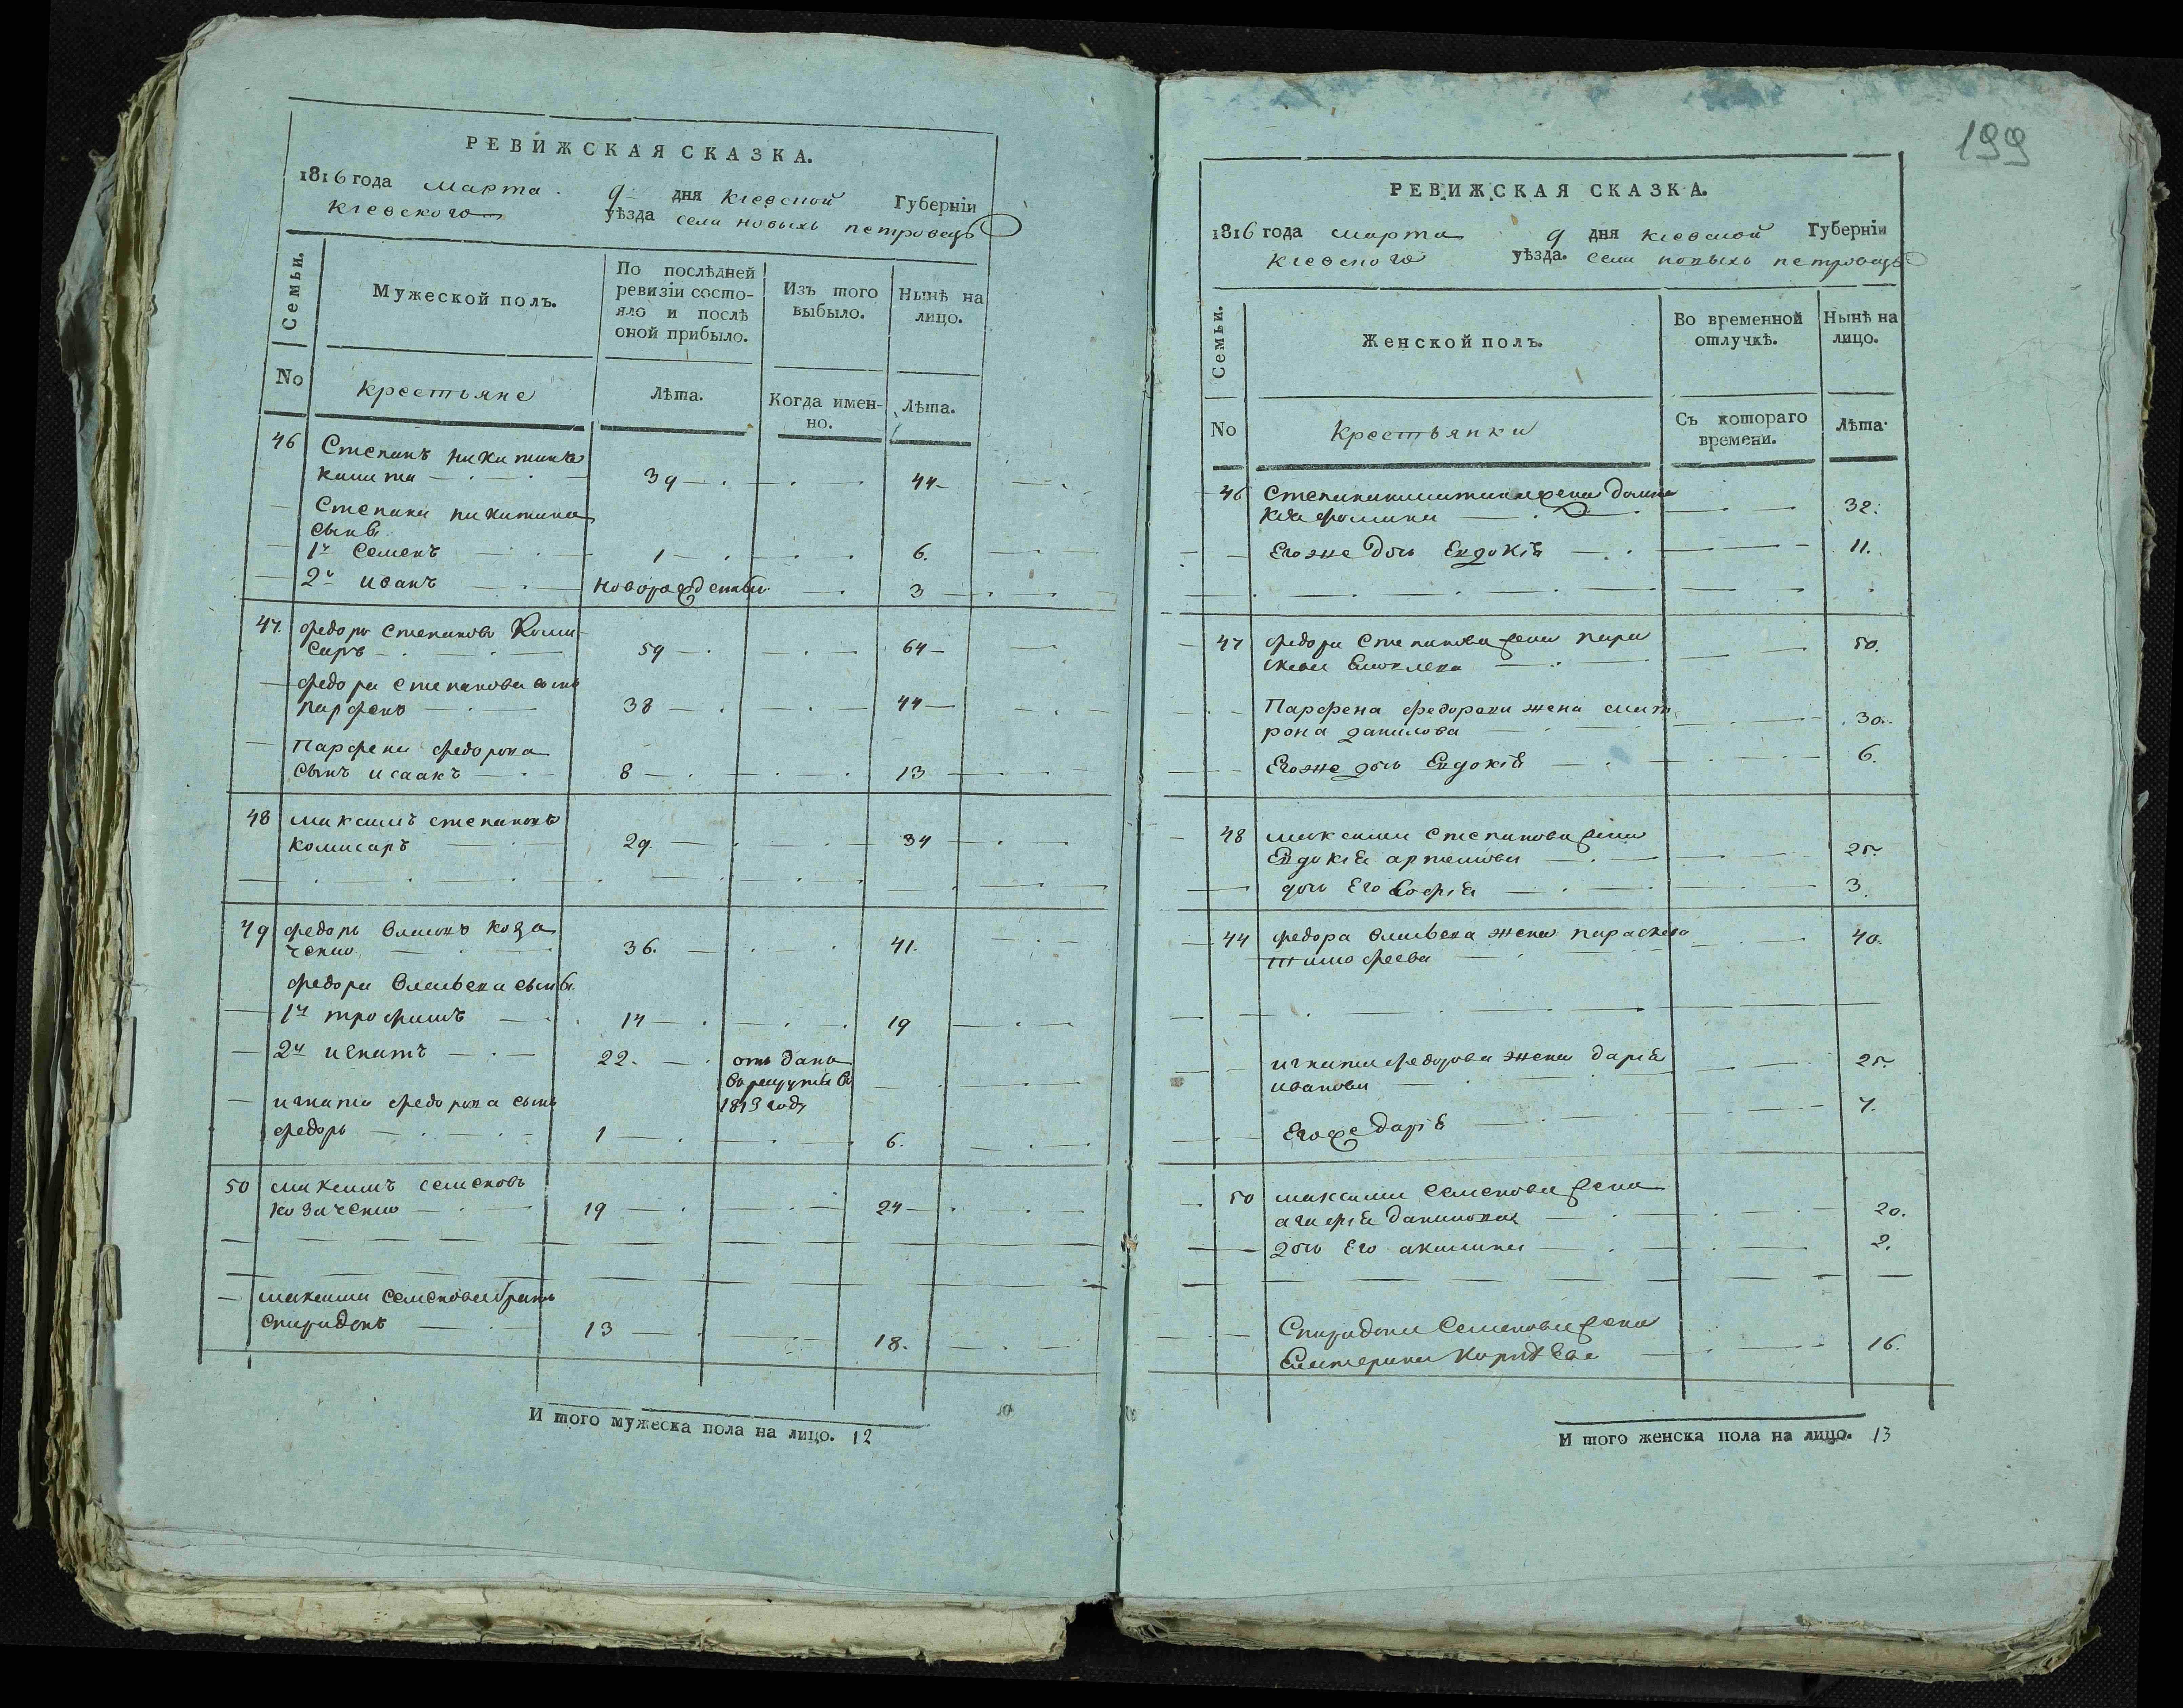 РЕВИЖСКАЯ СКАЗКА.
1816 года марта 9 дня кіевской Губерніи
кіевского уѣзда села новыхъ петровецъ
Семьи.
Мужеской полъ.
По послѣдней
ревизіи состо-
яло и послѣ
оной прибыло.
Изъ того
выбыло.
Нынѣ на
лицо.
No
крестьяне
Лѣта.
Когда имен-
но.
Лѣта.
46 Степанъ никитинъ
39 44
Степана никитина
сынъ
1й Семенъ 1 6.
2й иванъ новорожденный 3
47. федоръ степановъ Коми-
саръ 59 64
федора степанова сынъ
парфенъ 38 44
Парфена федорова
сынъ исаакъ 8 13
48 максимъ степановъ
комисаръ 29. 34
49 федоръ коза
ченко 36. 41.
федора сынъ
1й трофимъ 14 19
2й игнатъ 22. отъ дана
въ рекруты въ
1813 году
игната федорова сынъ
федоръ 1 6.
50 максимъ семеновъ
козаченко 19 24
максима семенова братъ
спиридонъ 13 18.
И того мужеска пола на лицо. 12
199
РЕВИЖСКАЯ СКАЗКА.
1816 года марта 9 дня кіевской Губерніи
кіевского уѣзда. села новыхъ петровецъ
Семьи.
Женской полъ.
Во временной
отлучкѣ.
Нынѣ на
лицо.
No
Крестьянки
Съ котораго
времени.
Лѣта.
46 Степана никитина жена домни
кія фомина 32.
Его же дочь Евдокія 11.
47 федора Степанова жена пара
скева 50.
Парфена федорова жена мат
рона данилова 30.
Его же дочь Евдокія 6.
48 максима Степанова жена
Евдокія артемова 25.
дочь Его Софія 3.
44 федора жена параскева
тимофеева 40.
игната федорова жена дарія
иванова 25.
Его же дарія 7.
50 максима Семенова жена
агафія данилова 20.
дочь Его акилина 2.
Спиридона Семенова жена
Екатерина 16.
И того женска пола на лицо. 13